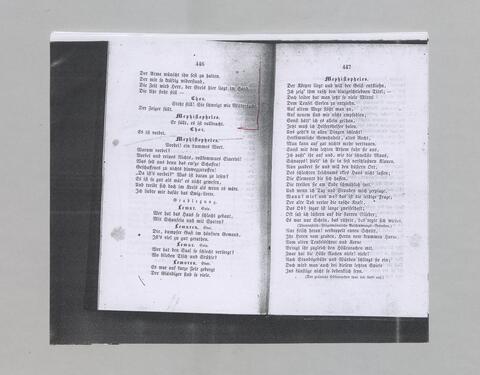 446
Der Arme wünscht ihn fest zu halten.
Der mir so kräftig widerstand,
Die Zeit wird Herr, der Greis hier liegt im Sand.
Die Uhr steht still —
Chor.
Steht still! Sie schweigt wie Mitternacht.
Der Zeiger fällt.
Mephistopheles.
Er fällt, es ist vollbracht.
Chor.
Es ist vorbei.
Mephistopheles.
Vorbei! ein dummes Wort.
Warum vorbei?
Vorbei und reines Nicht, vollkommnes Einerlei!
Was soll uns denn das ew'ge Schaffen!
Geschaffenes zu nichts hinwegzuraffen!
„Da ist's vorbei!“ Was ist daran zu lesen?
Es ist so gut als wär' es nicht gewesen,
Und treibt sich doch im Kreis als wenn es wäre.
Ich liebte mir dafür das Ewig-Leere.
Grablegung.
Lemur. Solo.
Wer hat das Haus so schlecht gebaut,
Mit Schaufeln und mit Spaten?
Lemuren. Chor.
Dir, dumpfer Gast im hänfnen Gewand,
Ist's viel zu gut gerathen.
Lemur. Solo.
Wer hat den Saal so schlecht versorgt?
Wo blieben Tisch und Stühle?
Lemuren. Chor.
Es war auf kurze Zeit geborgt
Der Gläubiger sind so viele.
447
Mephistopheles.
Der Körper liegt und will der Geist entfliehn,
Ich zeig' ihm rasch den blutgeschriebnen Titel;
Doch leider hat man jetzt so viele Mittel
Dem Teufel Seelen zu entziehn.
Auf altem Wege stößt man an,
Auf neuem sind wir nicht empfohlen;
Sonst hätt' ich es allein gethan,
Jetzt muß ich Helfershelfer holen.
Uns geht's in allen Dingen schlecht!
Herkömmliche Gewohnheit, altes Recht,
Man kann auf gar nichts mehr vertrauen.
Sonst mit dem letzten Athem fuhr sie aus,
Ich paßt' ihr auf und, wie die schnellste Maus,
Schnapps! hielt ich sie in fest verschloßnen Klauen.
Nun zaudert sie und will den düstern Ort,
Des schlechten Leichnams ekles Haus nicht lassen;
Die Elemente die sich hassen,
Die treiben sie am Ende schmählich fort.
Und wenn ich Tag und Stunden mich zerplage,
Wann? wie? und wo? das ist die leidige Frage;
Der alte Tod verlor die rasche Kraft,
Das Ob? sogar ist lange zweifelhaft;
Oft sah ich lüstern auf die starren Glieder;
Es war nur Schein, das rührte, das regte sich wieder.
(Phantastisch-flügelmännische Beschwörungs-Gebärden.)
Nur frisch heran! verdoppelt euren Schritt,
Ihr Herrn vom graden, Herrn vom krummen Horne,
Vom alten Teufelsschrot und Korne
Bringt ihr zugleich den Höllenrachen mit.
Zwar hat die Hölle Rachen viele! viele!
Nach Standsgebühr und Würden schlingt sie ein;
Doch wird man auch bei diesem letzten Spiele
Ins künftige nicht so bedenklich sein.
(Der gräuliche Höllenrachen thut sich links auf.)